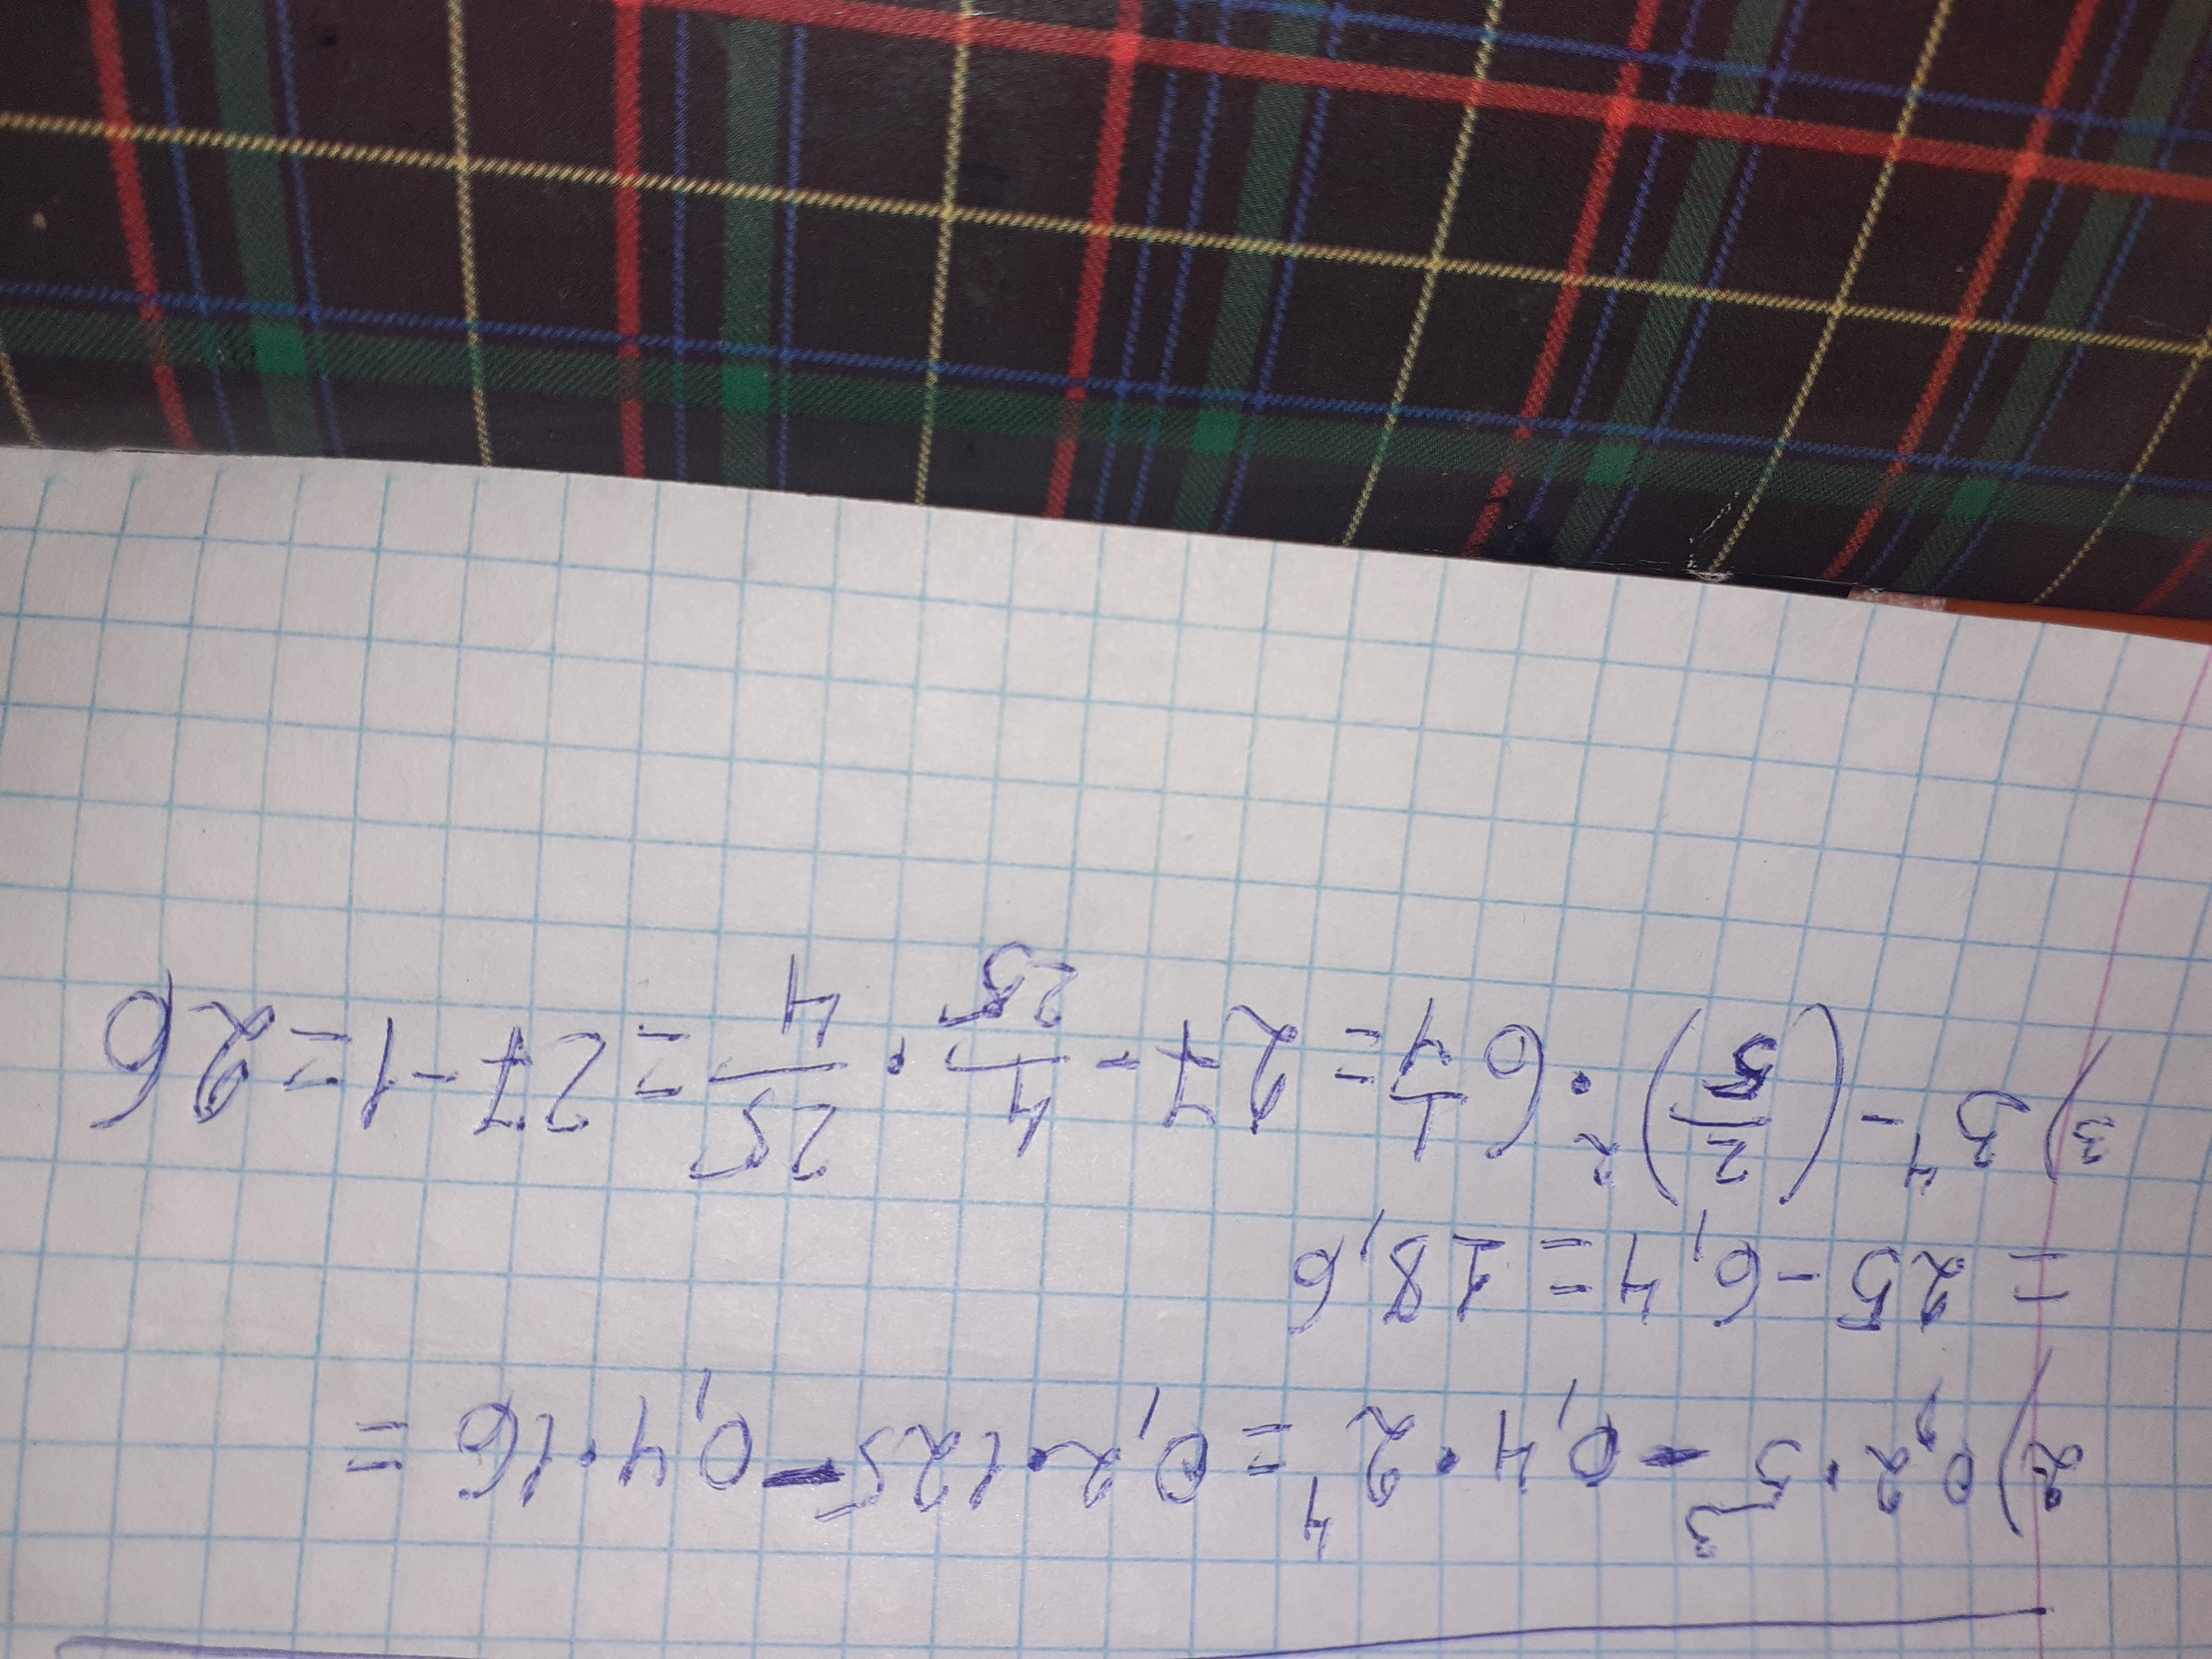 2) 0,2 · 5³ - 0,4 · 2⁴ = 0,2 · 125 - 0,4 · 16 =
= 25 - 6,4 = 18,6
3) 3⁴ - (2/5)² · 6 1/4 = 27 - 4/25 · 25/4 = 27 - 1 = 26